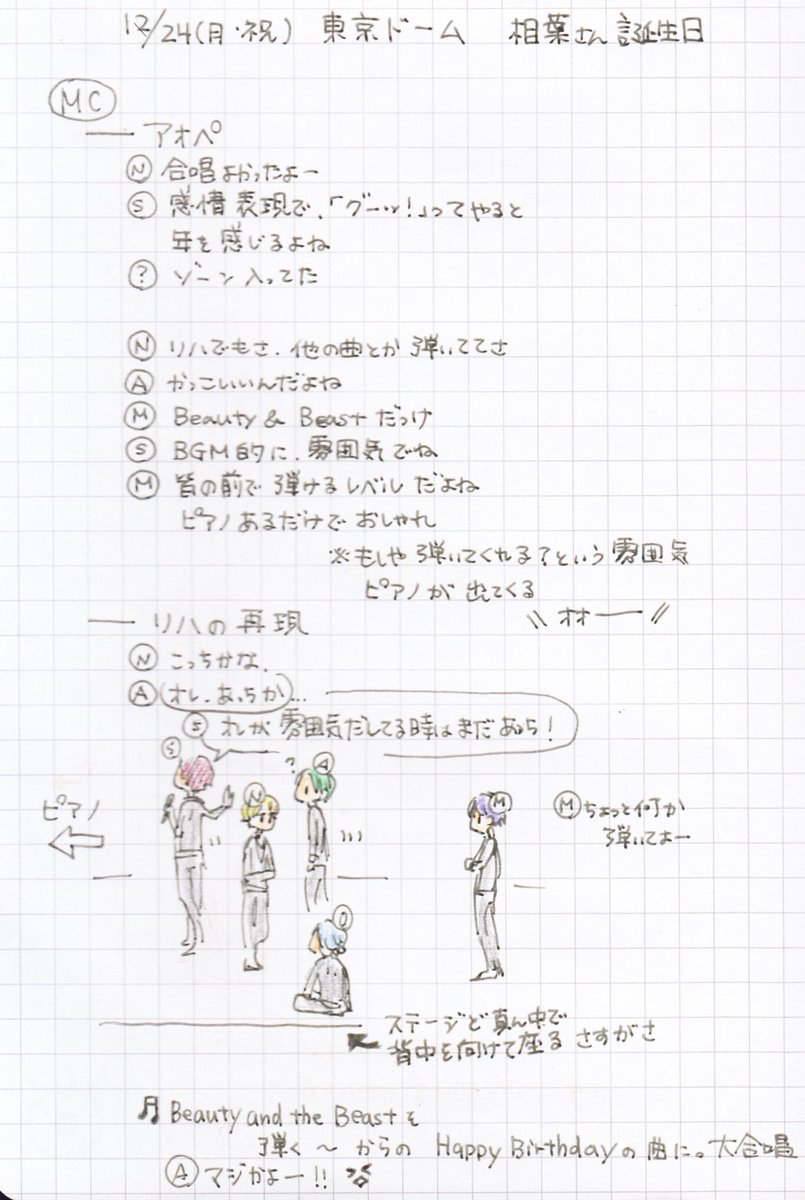 12/24(月・祝) 東京ドーム 相葉さん誕生日
MC
― アオペ
N 合唱よかったよー
S 感情表現で、「グーッ!」ってやると
年を感じるよね
? ゾーン入ってた
N リハでもさ、他の曲とか弾いててさ
A かっこいいんだよね
M Beauty & Beastだっけ
S BGM的に、雰囲気でね
M 皆の前で弾けるレベルだよね
ピアノあるだけでおしゃれ
※もしや弾いてくれる?という雰囲気
ピアノが出てくる
― リハの再現
\\ オオー //
N こっちかな、
A オレ、あっちか...
S オレが雰囲気だしてる時はまだあっち!
S
N
? A
M
ピアノ
M ちょっと何か
弾いてよー
O
ステージど真ん中で
背中を向けて座る さすがさ
♬ Beauty and the Beastを
弾く ~ からの Happy Birthdayの曲に。大合唱
A マジかよー!!